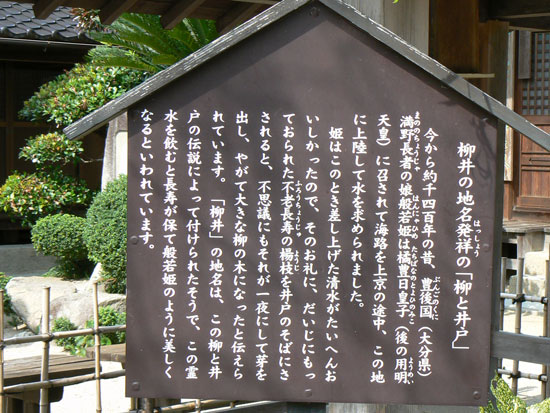 柳井の地名発祥の「柳と井戸」
今から約千四百年の昔、豊後国（大分県）
満野長者の娘般若姫は橘豊日皇子（後の用明
天皇）に召されて海路を上京の途中、この地
に上陸して水を求められました。
姫はこのとき差し上げた清水がたいへんお
いしかったので、そのお礼に、だいじにもっ
ておられた不老長寿の楊枝を井戸のそばにさ
されると、不思議にもそれが一夜にして芽を
出し、やがて大きな柳の木になったと伝えら
れています。「柳井」の地名は、この柳と井
戸の伝説によって付けられたそうで、この霊
水を飲むと長寿が保て般若姫のように美しく
なるといわれています。